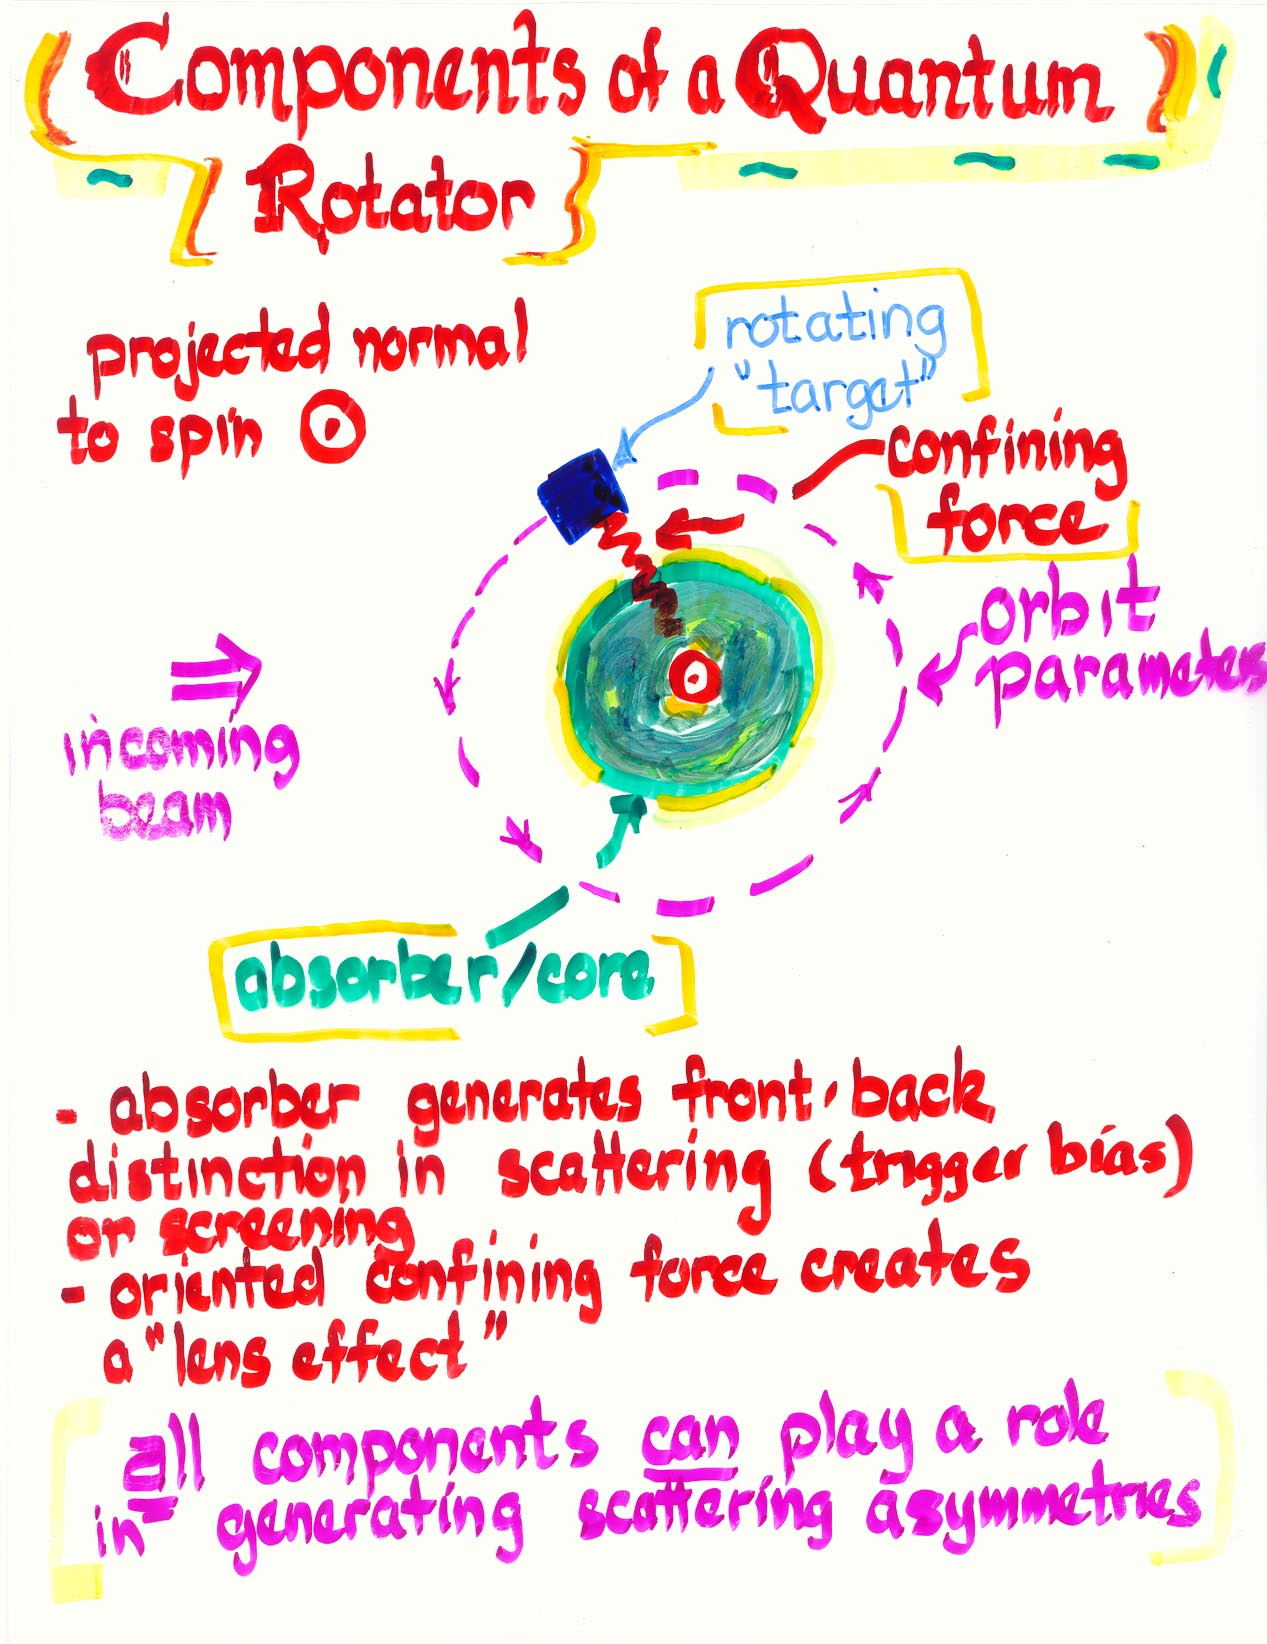 Components of a Quantum
Rotator
projected normal
to spin
rotating
"target"
confining
force
orbit
parameters
incoming
beam
absorber/core
- absorber generates front-back
distinction in scattering (trigger bias)
or screening
- oriented confining force creates
a "lens effect"
all components can play a role
in generating scattering asymmetries